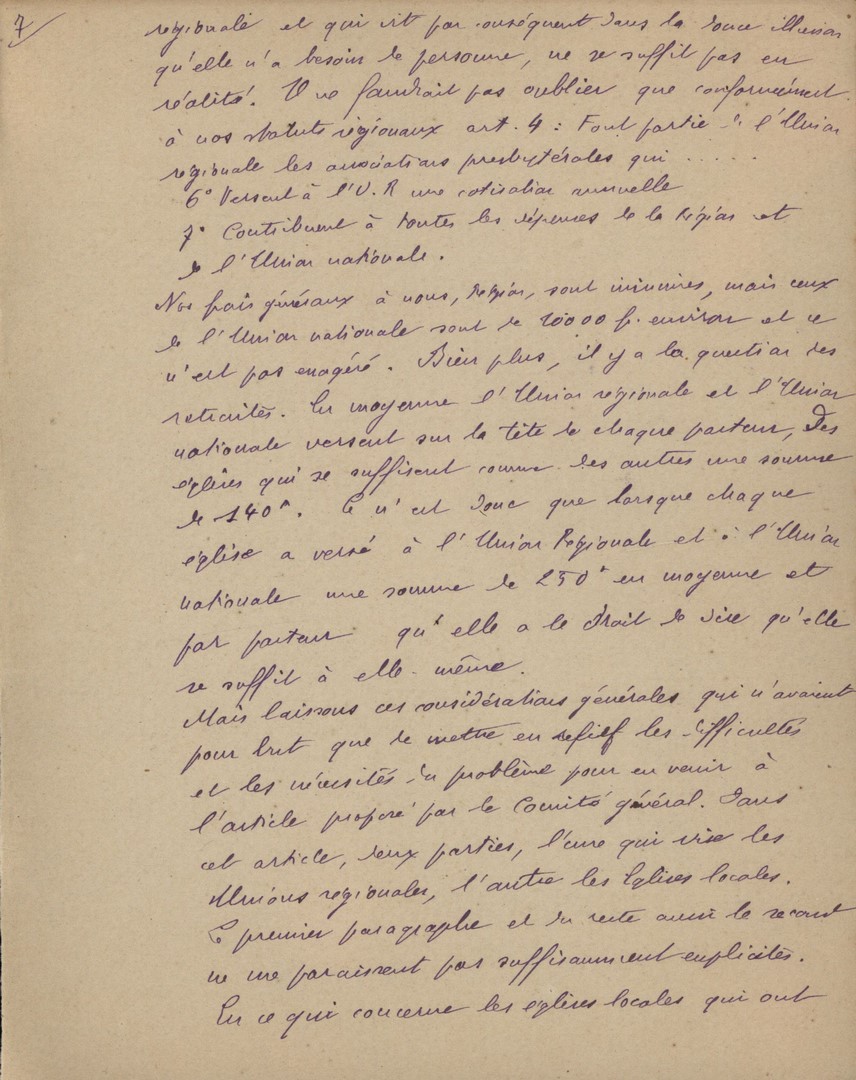 7
régionale et qui vit par conséquent dans la douce illusion
qu'elle n'a besoin de personne, ne se suffit pas en
réalité. Il ne faudrait pas oublier que conformément
à nos statuts régionaux art. 4 : Font partie de l'Union
régionale les associations presbytérales qui .....
6° Versent à l'U.R une cotisation annuelle
7° Contribuent à toutes les dépenses de la Région et
de l'Union nationale.
Nos frais généraux à nous, région, sont minimes, mais ceux
de l'Union nationale sont de 10000 f. environ et ce
n'est pas exagéré. Bien plus, il y a la question des
retraités. En moyenne l'Union régionale et l'Union
nationale versent sur la tête de chaque pasteur, des
églises qui se suffisent comme des autres une somme
de 140 f. Ce n'est donc que lorsque chaque
église a versé à l'Union Régionale et à l'Union
nationale une somme de 250 f en moyenne et
par pasteur qu'elle a le droit de dire qu'elle
se suffit à elle-même.
Mais laissons ces considérations générales qui n'avaient
pour but que de mettre en relief les difficultés
et les nécessités du problème pour en venir à
l'article proposé par le Comité général. Dans
cet article, deux parties, l'une qui vise les
Unions régionales, l'autre les Eglises locales.
Le premier paragraphe et du reste aussi le second
ne me paraissent pas suffisamment explicites.
En ce qui concerne les églises locales qui ont